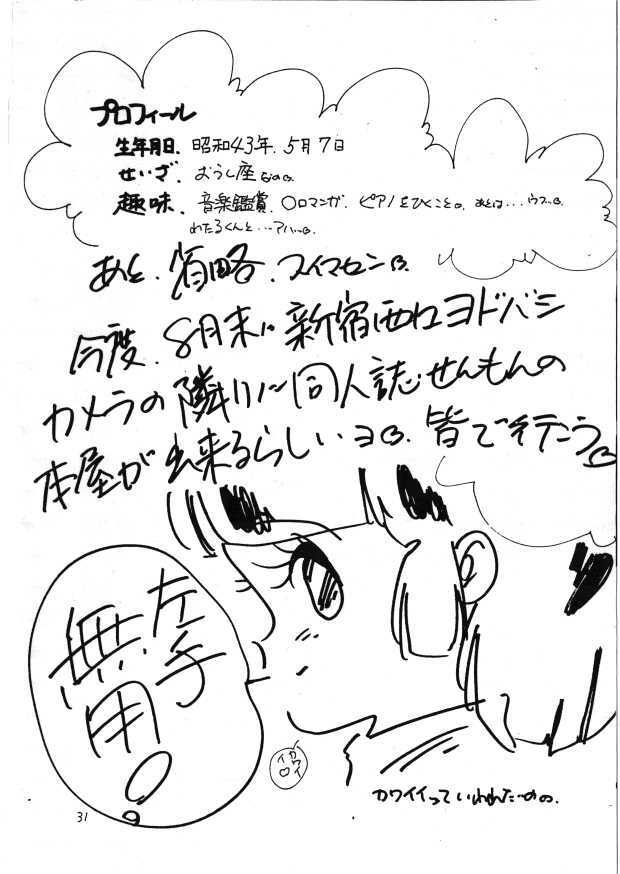 プロフィール
生年月日. 昭和43年. 5月7日
せいざ. おうし座なの。
趣味. 音楽鑑賞. ○ロマンガ. ピアノをひくこと。あとは…ウフ。
わたるくんと…アハ。
あと. 省略. スイマセン。
今度. 8月末に新宿西口ヨドバシ
カメラの隣りに同人誌せんもんの
本屋が出来るらしいヨ。皆で行こう。
左手
無用!
カワイイ
カワイイっていわれた
31